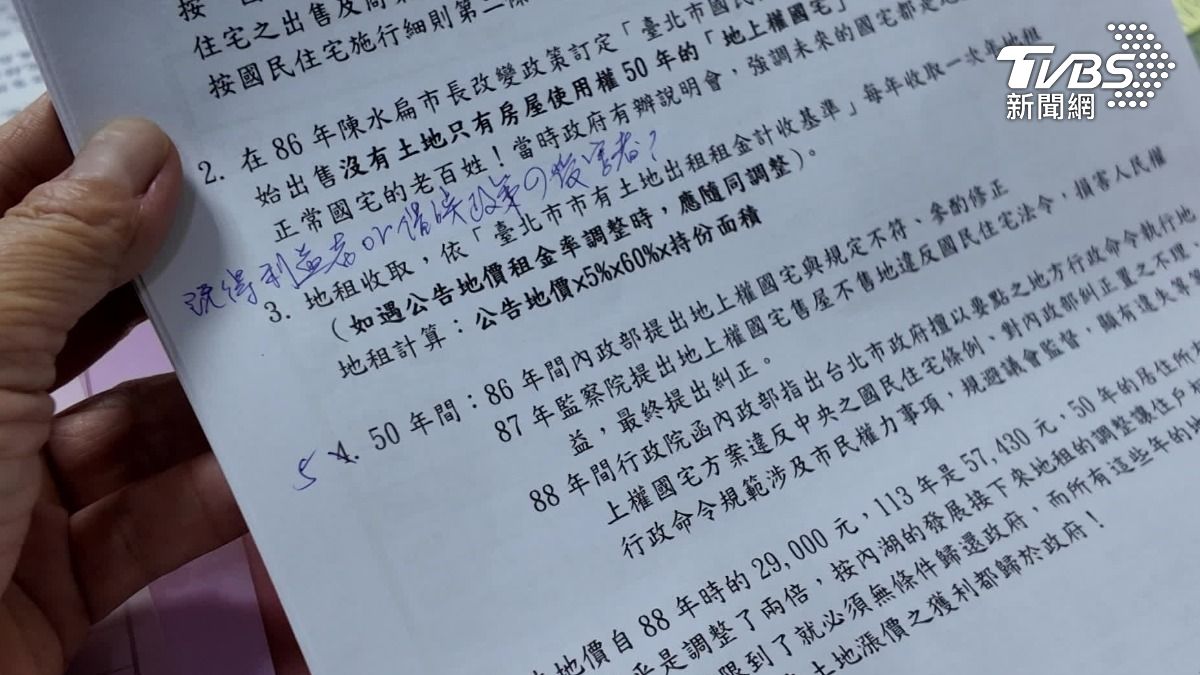 TVBS
新聞網
按
住宅之出售及
按國民住宅施行細則第二
2. 在 86 年陳水扁市長改變政策訂定「臺北市國民
始出售沒有土地只有房屋使用權 50 年的「地上權國宅」
正常國宅的老百姓！當時政府有辦說明會，強調未來的國宅都是
既得利益者 or 錯誤政策の受害者？
3. 地租收取，依「臺北市市有土地出租租金計收基準」每年收取一次年地租
（如遇公告地價租金率調整時，應隨同調整）。
地租計算：公告地價x5%x60%x持份面積
5 4. 50 年間：86 年間內政部提出地上權國宅與規定不符、參酌修正
87 年監察院提出地上權國宅售屋不售地違反國民住宅法令，損害人民權
益，最終提出糾正。
88 年間行政院函內政部指出台北市政府擅以要點之地方行政命令執行地
上權國宅方案違反中央之國民住宅條例、對內政部糾正置之不理、
行政命令規範涉及市民權力事項，規避議會監督，顯有違失等
地價自 88 年時的 29,000 元，113 年是 57,430 元，50 年的居住所
乎是調整了兩倍，按內湖的發展接下來地租的調整讓住戶
限到了就必須無條件歸還政府，而所有這些年的
土地漲價之獲利都歸於政府！